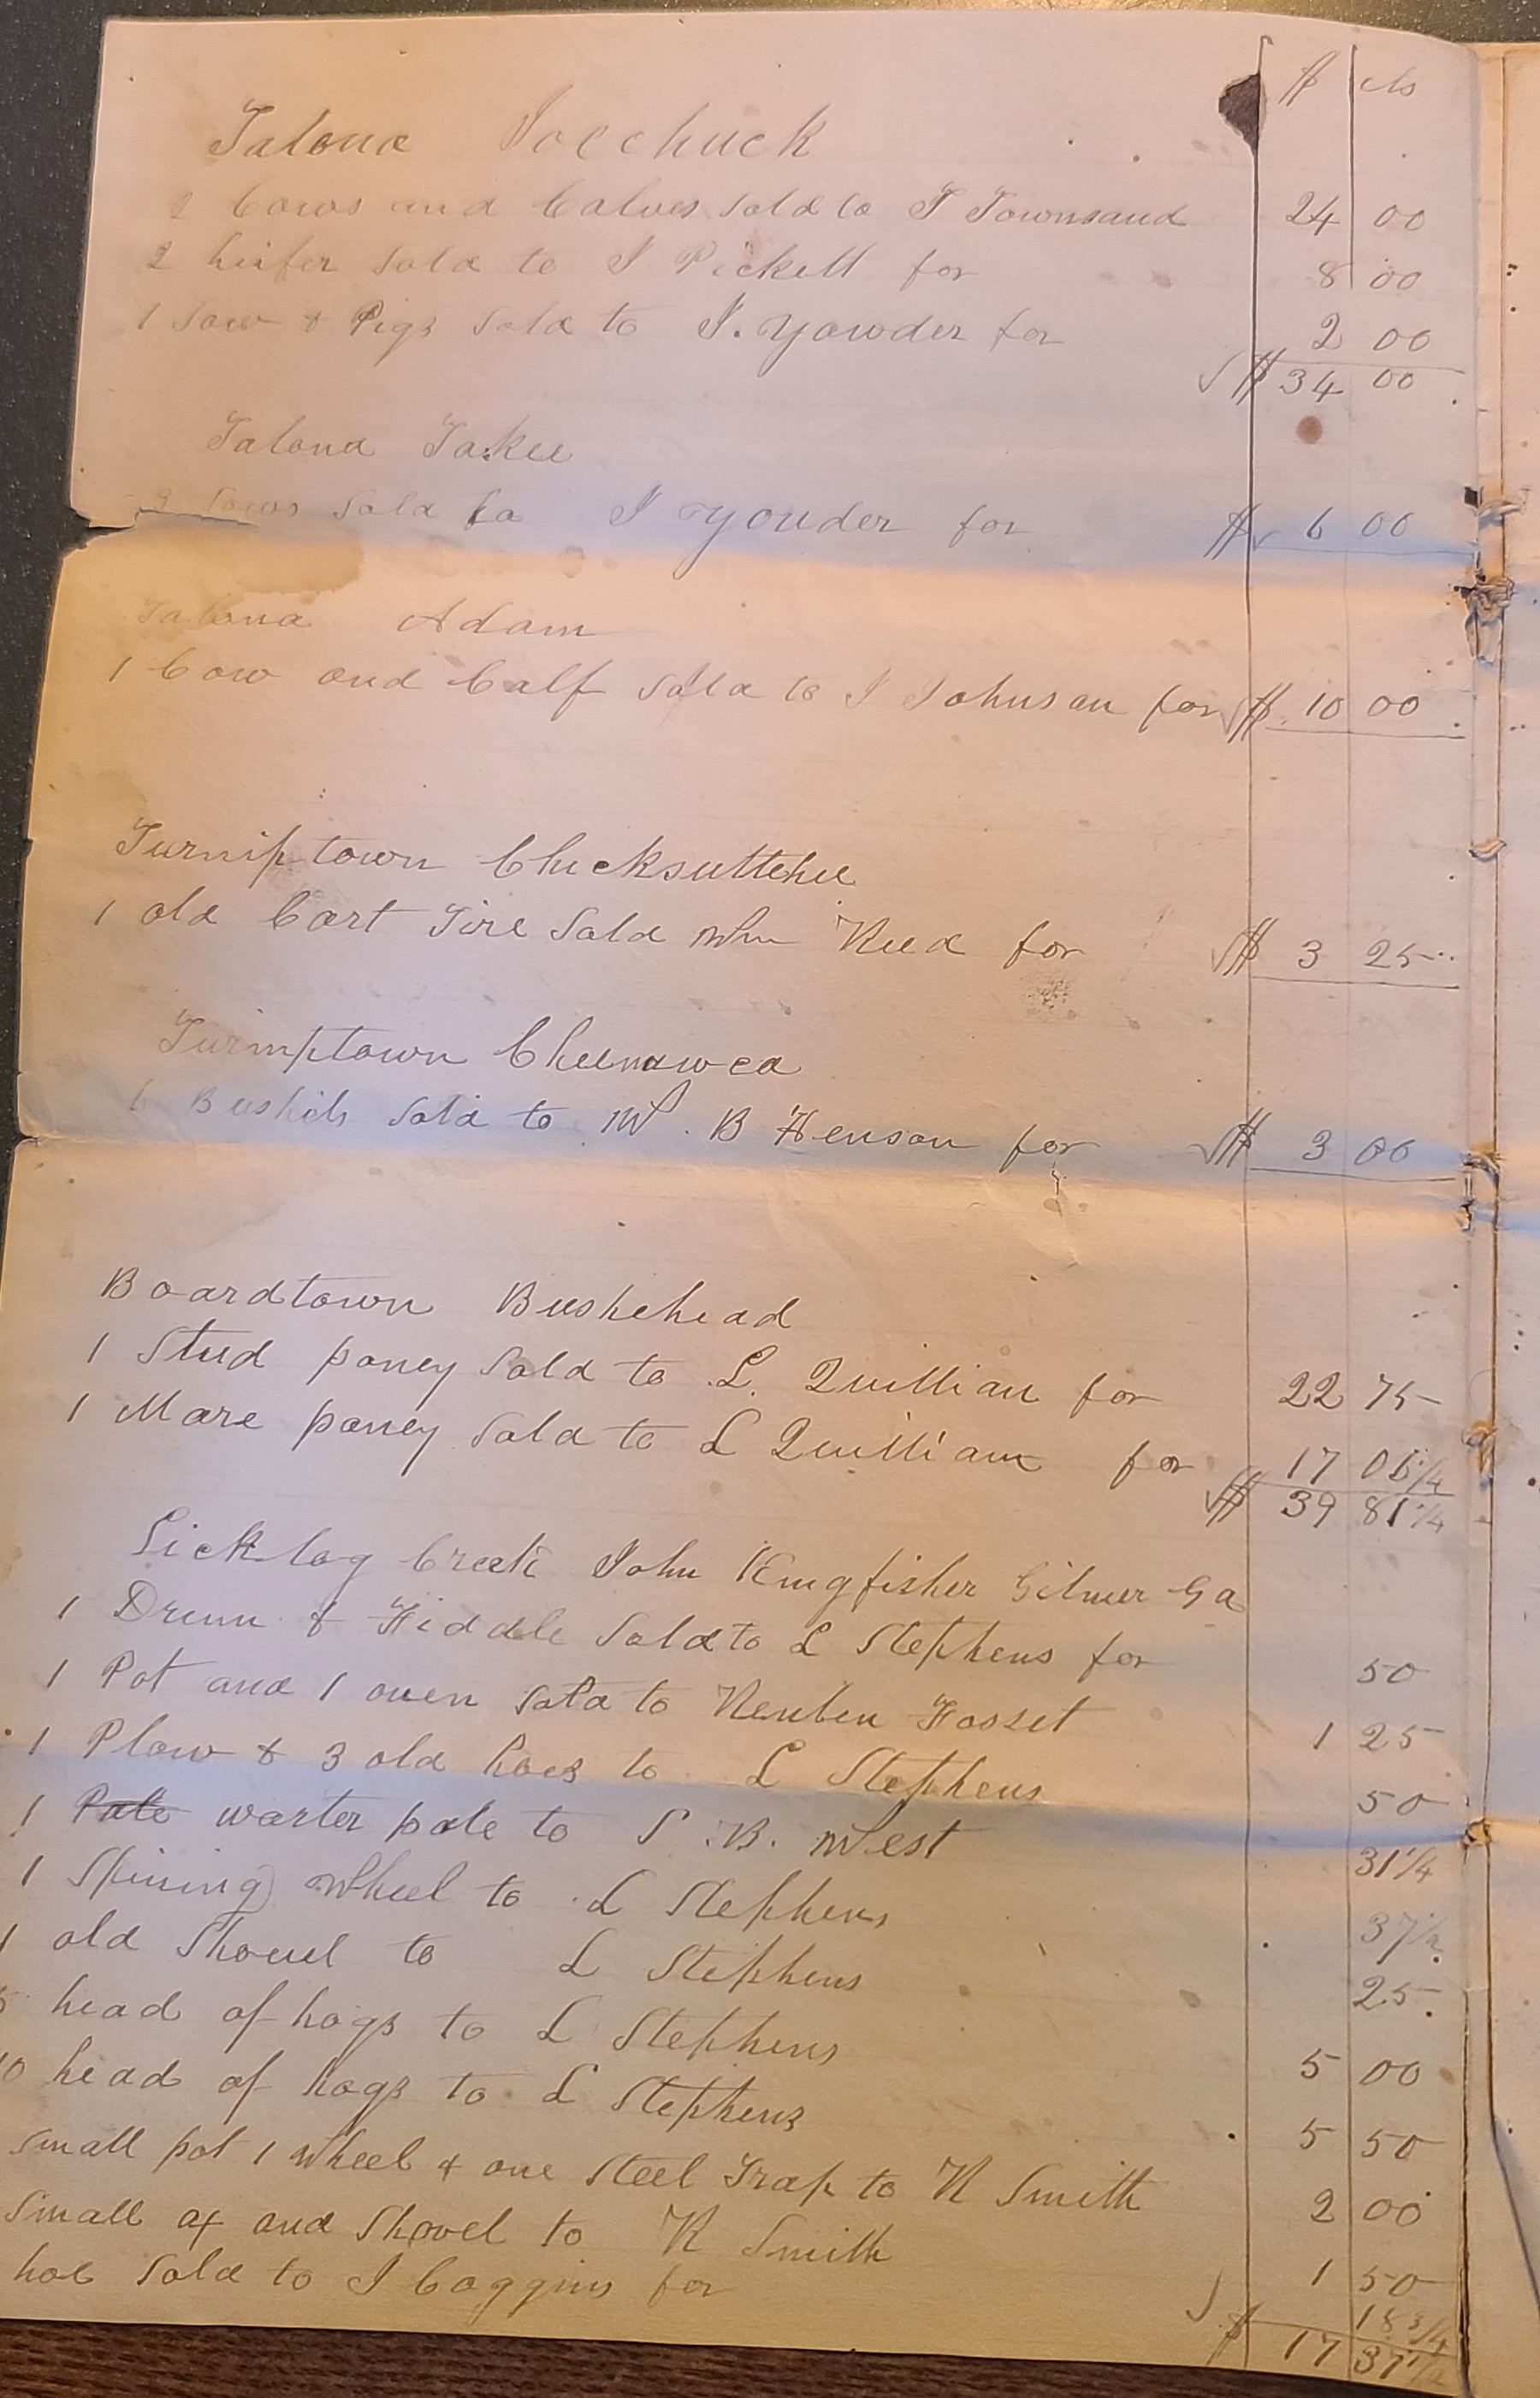 $ cts
Talona Joechuck
2 Cows and Calves Sold to T Townsand 24 00
2 heifer Sold to J Pickett for 8 00
1 Sow & Pigs Sold to J. Yowder for 2 00
$ 34 00
Talona Takee
3 Sows Sold to J Yonder for $ 6 00
Talona Adam
1 Cow and Calf Sold to J Johnson for $ 10 00
Turniptown Chucksuttehee
1 old Cart Tire Sold Wm Reed for $ 3 25
Turniptown Cheenawea
6 Bushels Sold to W. B Henson for $ 3 00
Boardtown Bushehead
1 Stud poney Sold to L. Quillian for 22 75
1 Mare poney Sold to L Quilliam for 17 06 1/4
$ 39 81 1/4
Lick log Creek John Kingfisher Gilmer Ga
1 Drum & Fiddle Sold to L Stephens for 50
1 Pot and 1 oven Sold to Reuben Fosset 1 25
1 Plow & 3 old hoes to L Stephens 50
1 Pale warter pale to S. B. West 31 1/4
1 Spining Wheel to L Stephens 37 1/2
1 old Shovel to L Stephens 25
5 head of hogs to L Stephens 5 00
10 head of hogs to L Stephens 5 50
small pot 1 Wheel & one Steel Trap to R Smith 2 00
Small ax and Shovel to R Smith 1 50
hoe Sold to J Coggins for 18 3/4
$ 17 37 1/2